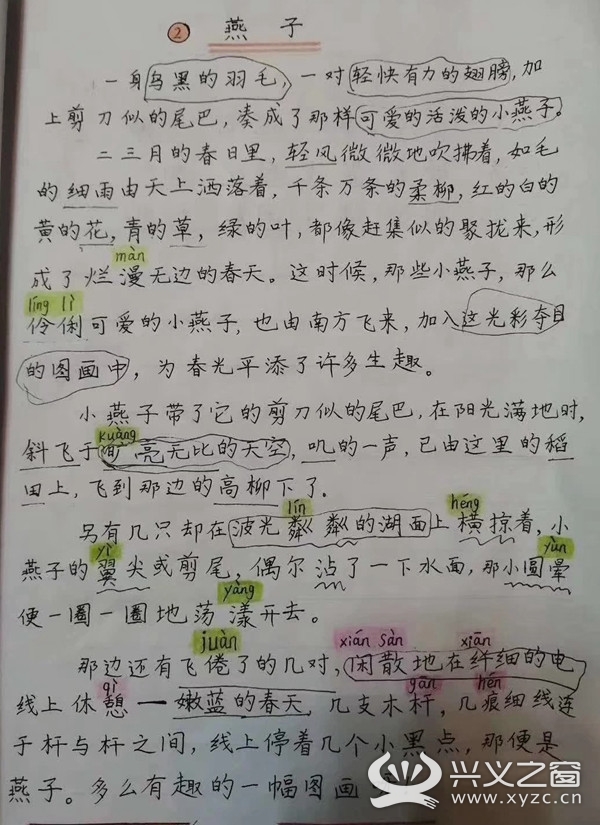 ② 燕子
一身乌黑的羽毛，一对轻快有力的翅膀，加
上剪刀似的尾巴，凑成了那样可爱的活泼的小燕子。
二三月的春日里，轻风微微地吹拂着，如毛
的细雨由天上洒落着，千条万条的柔柳，红的白的
黄的花，青的草，绿的叶，都像赶集似的聚拢来，形
màn
成了烂漫无边的春天。这时候，那些小燕子，那么
líng lì
伶俐可爱的小燕子，也由南方飞来，加入这光彩夺目
的图画中，为春光平添了许多生趣。
小燕子带了它的剪刀似的尾巴，在阳光满地时，
kuàng
斜飞于旷亮无比的天空，叽的一声，已由这里的稻
田上，飞到那边的高柳下了。
lín héng
另有几只却在波光粼粼的湖面上横掠着，小
yì yùn
燕子的翼尖或剪尾，偶尔沾了一下水面，那小圆晕
yàng
便一圈一圈地荡漾开去。
juàn xián sàn xiān
那边还有飞倦了的几对，闲散地在纤细的电
qì gān hén
线上休憩一嫩蓝的春天，几支木杆，几痕细线连
于杆与杆之间，线上停着几个小黑点，那便是
燕子。多么有趣的一幅图画
兴义之窗
www.xyzc.cn